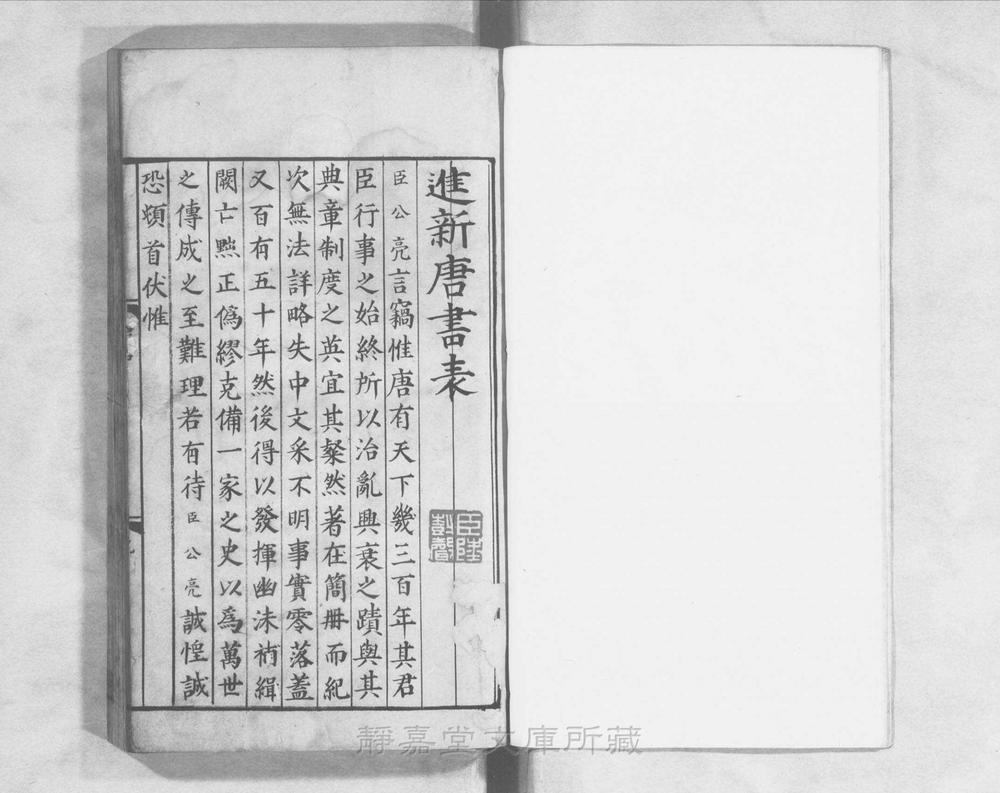 進新唐書表
臣公亮言竊惟唐有天下幾三百年其君
臣行事之始終所以治亂興衰之蹟與其
典章制度之英宜其粲然著在簡冊而紀
次無法詳略失中文采不明事實零落蓋
又百有五十年然後得以發揮幽沬補緝
闕亡黜正僞繆克備一家之史以爲萬世
之傳成之至難理若有待臣公亮誠惶誠
恐頓首伏惟
靜嘉堂文庫所藏